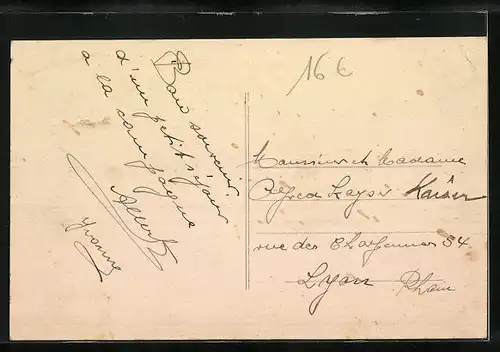 Bon souvenir
d'un petit séjour
a la campagne
Yvonne
16 €
Monsieur et Madame
Alfred Kayser Kaiser
rue des Charpennes 54
Lyon Rhône